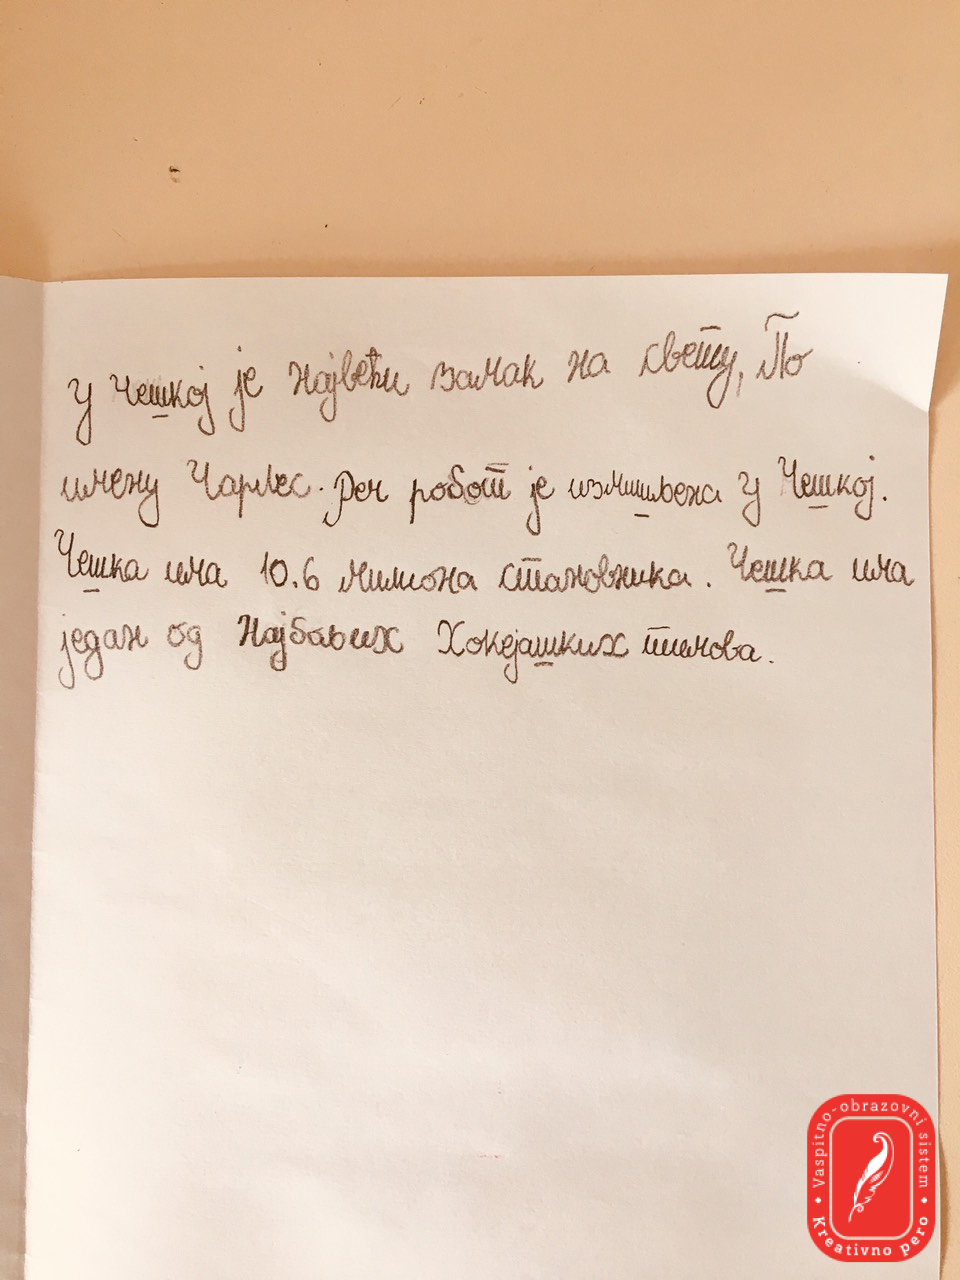 У Чешкој је највећи замак на свету, По
имену Чарлес. Реч робот је измишљена у Чешкој.
Чешка има 10.6 милиона становника. Чешка има
један од најбољих Хокејашких тимова.
Vaspitno-obrazovni sistem
Kreativno pero